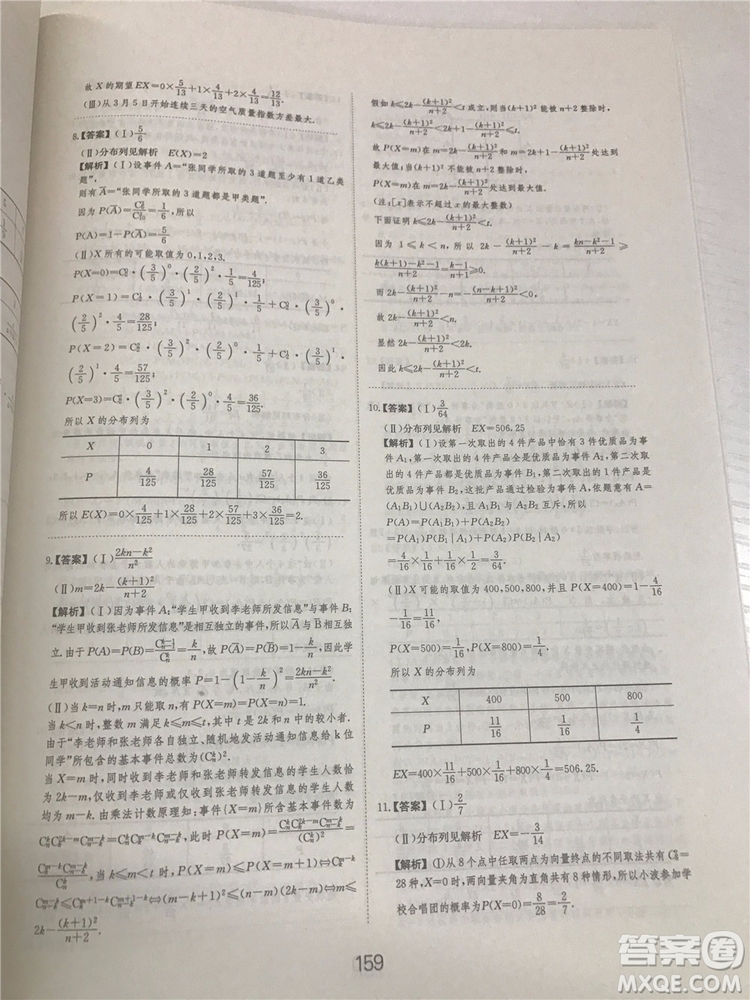 故 X 的期望 EX=0×5/13+1×4/13+2×4/13=12/13.
(Ⅲ)从 3 月 5 日开始连续三天的空气质量指数方差最大.
8.【答案】(Ⅰ)5/6
(Ⅱ)分布列见解析 E(X)=2
【解析】(Ⅰ)设事件 A="张同学所取的 3 道题至少有 1 道乙类
题",
则有 A̅="张同学所取的 3 道题都是甲类题".
因为 P(A̅)=C₆³/C₁₀³=1/6,所以
P(A)=1-P(A̅)=5/6.
(Ⅱ)X 所有的可能取值为 0,1,2,3.
P(X=0)=C₂⁰·(3/5)⁰·(2/5)²·1/5=4/125;
P(X=1)=C₂¹·(3/5)¹·(2/5)¹·1/5+C₂⁰·(3/5)⁰
·(2/5)²·4/5=28/125;
P(X=2)=C₂²·(3/5)²·(2/5)⁰·1/5+C₂¹·(3/5)¹·
(2/5)¹·4/5=57/125;
P(X=3)=C₂²·(3/5)²·(2/5)⁰·4/5=36/125.
所以 X 的分布列为
X 0 1 2 3
P 4/125 28/125 57/125 36/125
所以 E(X)=0×4/125+1×28/125+2×57/125+3×36/125=2.
9.【答案】(Ⅰ)(2kn-k²)/n²
(Ⅱ)m=2k-(k+1)²/(n+2)
【解析】(Ⅰ)因为事件 A:"学生甲收到李老师所发信息"与事件 B:
"学生甲收到张老师所发信息"是相互独立的事件,所以 A̅ 与 B̅ 相互独
立.由于 P(A)=P(B)=Cₙ₋₁ᵏ⁻¹/Cₙᵏ=k/n,故 P(A̅)=P(B̅)=1-k/n,因此学
生甲收到活动通知信息的概率 P=1-(1-k/n)²=(2kn-k²)/n².
(Ⅱ)当 k=n 时,m 只能取 n,有 P(X=m)=P(X=n)=1.
当 k<n 时,整数 m 满足 k≤m≤t,其中 t 是 2k 和 n 中的较小者.
由于"李老师和张老师各自独立、随机地发活动通知信息给 k 位
同学"所包含的基本事件总数为(Cₙᵏ)².
当 X=m 时,同时收到李老师和张老师转发信息的学生人数恰为
2k-m,仅收到李老师或仅收到张老师转发信息的学生人数
均为 m-k.由乘法计数原理知:事件{X=m}所含基本事件数为
CₙᵏCₖ²ᵏ⁻ᵐCₙ₋ₖᵐ⁻ᵏ=CₙᵏCₖᵐ⁻ᵏCₙ₋ₖᵐ⁻ᵏ,此时 P(X=m)=CₙᵏCₖᵐ⁻ᵏCₙ₋ₖᵐ⁻ᵏ/(Cₙᵏ)²
=Cₖᵐ⁻ᵏCₙ₋ₖᵐ⁻ᵏ/Cₙᵏ.当 k≤m<t 时,P(X=m)≤P(X=m+1)⇔
Cₖᵐ⁻ᵏCₙ₋ₖᵐ⁻ᵏ≤Cₖᵐ⁺¹⁻ᵏCₙ₋ₖᵐ⁺¹⁻ᵏ⇔(m-k+1)²≤(n-m)(2k-m)⇔m≤
2k-(k+1)²/(n+2).
假如 k≤2k-(k+1)²/(n+2)<t 成立,则当(k+1)² 能被 n+2 整除时,
k≤2k-(k+1)²/(n+2)<2k+1-(k+1)²/(n+2)≤t.
故 P(X=m)在 m=2k-(k+1)²/(n+2)和 m=2k+1-(k+1)²/(n+2)处达到
最大值;当(k+1)² 不能被 n+2 整除时,
P(X=m)在 m=2k-[(k+1)²/(n+2)]处达到最大值.
(注:[x]表示不超过 x 的最大整数)
下面证明 k≤2k-(k+1)²/(n+2)<t.
因为 1≤k<n,所以 2k-(k+1)²/(n+2)-k=(kn-k²-1)/(n+2)≥
(k(k+1)-k²-1)/(n+2)=(k-1)/(n+2)≥0.
而 2k-(k+1)²/(n+2)-n=-(n-k+1)²/(n+2)<0,
故 2k-(k+1)²/(n+2)<n.
显然 2k-(k+1)²/(n+2)<2k.
因此 k≤2k-(k+1)²/(n+2)<t.
10.【答案】(Ⅰ)3/64
(Ⅱ)分布列见解析 EX=506.25
【解析】(Ⅰ)设第一次取出的 4 件产品中恰有 3 件优质品为事
件 A₁,第一次取出的 4 件产品全是优质品为事件 A₂,第二次取出
的 4 件产品都是优质品为事件 B₁,第二次取出的 1 件产品是优质
品为事件 B₂,这批产品通过检验为事件 A,依题意有 A=
(A₁B₁)∪(A₂B₂),且 A₁B₁ 与 A₂B₂ 互斥,所以
P(A)=P(A₁B₁)+P(A₂B₂)
=P(A₁)P(B₁|A₁)+P(A₂)P(B₂|A₂)
=4/16×1/16+1/16×1/2=3/64.
(Ⅱ)X 可能的取值为 400,500,800,并且 P(X=400)=1-4/16
-1/16=11/16,
P(X=500)=1/16,P(X=800)=1/4.
所以 X 的分布列为
X 400 500 800
P 11/16 1/16 1/4
EX=400×11/16+500×1/16+800×1/4=506.25.
11.【答案】(Ⅰ)2/7
(Ⅱ)分布列见解析 EX=-3/14
【解析】(Ⅰ)从 8 个点中任取两点为向量终点的不同取法共有 C₈²=
28 种,两向量夹角为直角共有 8 种情形,所以小波参加学
校合唱团的概率为 P(X=0)=8/28=2/7.
159
答案圈
MXQE.COM